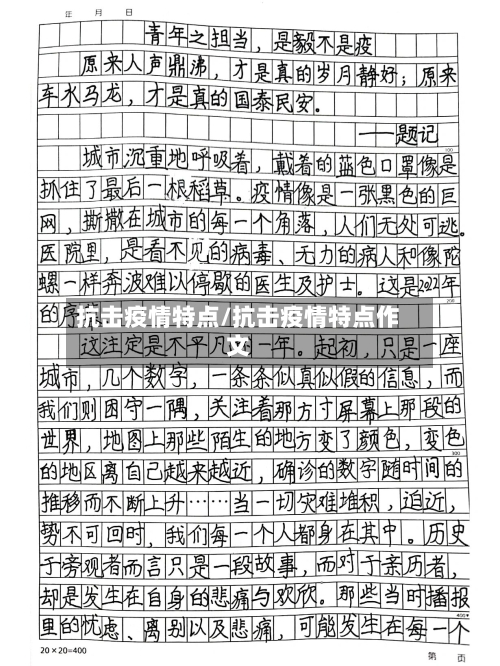 年 月 日
青年之担当，是毅不是疫
原来人声鼎沸，才是真的岁月静好；原来
车水马龙，才是真的国泰民安。
——题记
100
城市沉重地呼吸着，戴着的蓝色口罩像是
抓住了最后一根稻草。疫情像是一张黑色的巨
网，撕撒在城市的每一个角落，人们无处可逃。
医院里，是看不见的病毒、无力的病人和像陀
螺一样奔波难以停歇的医生及护士。这是2021年
200
的序
抗击疫情特点/抗击疫情特点作
文
这注定是不平凡 一年。起初，只是一座
城市，几个数字，一条条似真似假的信息，而
我们则困守一隅，关注着那方寸屏幕上那段的
世界，地图上那些陌生的地方变了颜色，变色
300
的地区离自己越来越近，确诊的数字随时间的
推移而不断上升……当一切灾难堆积，迫近，
势不可回时，我们每一个人都身在其中。历史
于旁观者而言只是一段故事，而对于亲历者，
却是发生在自身的悲痛与欢欣。那些当时播报
400
里的忧虑、离别以及悲痛，可能发生在每一个
20×20=400
第 页